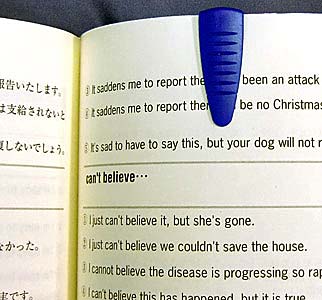 報告いたします。
は支給されないと
复しないでしょう。
なかった。
実です。
It saddens me to report the been an attack
It saddens me to report ther be no Christmas
It's sad to have to say this, but your dog will not r
can't believe…
I just can't believe it, but she's gone.
I just can't believe we couldn't save the house.
I cannot believe the disease is progressing so rap
I can't believe this has happened, but it is true.